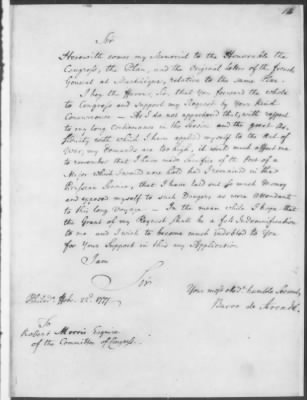 Sir
Herewith comes my Memorial to the Honourable the
Congress, the Plan, and the Original Letter of the french
General at Martinique, relative to the same Plan.
I beg the favour, Sir, that You forward the whole
to Congress and Support my Request by Your kind
Concurrence — As I do not apprehend that, with respect
to my long endurances in the Service and the great As-
siduity with which I have applied myself to the Art of
War, my Demands are too high, it will much affect me
to remember that I have made Sacrifice of the Post of a
Major which I would now hold had I remained in the
Prussian Service, that I have laid out So much Money
and exposed myself to such Dangers as were attendant
to this long Voyage — In the mean while I hope that
the Grant of my Request shall be a full Indemnification
to me and I wish to become much indebted to You
for Your Support in this my Application
I am
Sir
Your most obedt. humble Servant,
Baron de
Philada. Feb. 22d. 1777.
To
Robert Morris Esquire
of the Committee of Congress.